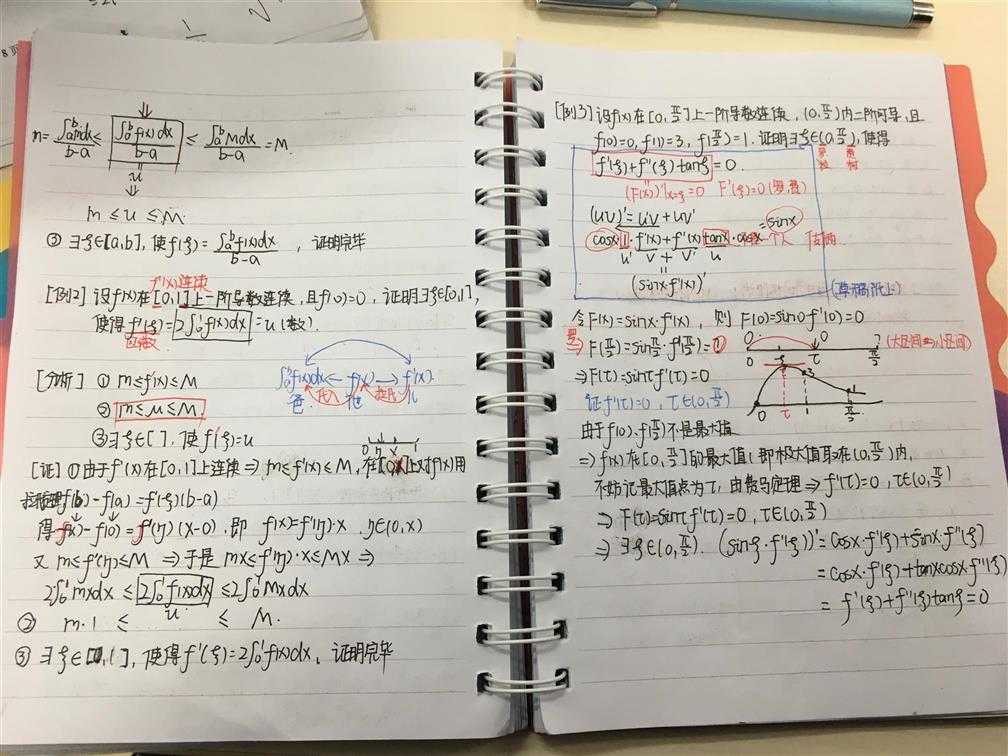 m = ∫ₐᵇ m dx / (b-a) ≤ ∫ₐᵇ f(x)dx / (b-a) ≤ ∫ₐᵇ M dx / (b-a) = M.
u
m ≤ u ≤ M.
③ ∃ξ∈[a,b], 使f(ξ) = ∫ₐᵇ f(x)dx / (b-a) , 证明完毕
f'(x)连续
[例2] 设f(x)在[0,1]上一阶导数连续, 且f(0)=0, 证明∃ξ∈[0,1],
使得f'(ξ)=2∫₀¹f(x)dx = u (数).
函数
[分析] ① m≤f'(x)≤M
∫₀¹f(x)dx ← f(x) → f'(x).
② m≤u≤M.
③ ∃ξ∈[ ], 使f'(ξ)=u
0 η x 1
[证] ①由于f'(x)在[0,1]上连续 ⇒ m≤f'(x)≤M, 在[0,x]上对f(x)用
拉格f(b)-f(a)=f'(ξ)(b-a)
得f(x)-f(0)=f'(η)(x-0), 即 f(x)=f'(η)·x. η∈(0,x)
又 m≤f'(η)≤M ⇒于是 mx≤f'(η)·x≤Mx ⇒
2∫₀¹mxdx ≤ 2∫₀¹f(x)dx ≤ 2∫₀¹Mxdx
u
② m·1 ≤ ≤ M.
③ ∃ξ∈[0,1], 使得f'(ξ)=2∫₀¹f(x)dx, 证明完毕
[例3] 设f(x)在[0,π/2]上一阶导数连续, (0,π/2)内二阶可导, 且
f(0)=0, f(1)=3, f(π/2)=1. 证明∃ξ∈(0,π/2), 使得
f'(ξ)+f''(ξ)tanξ=0.
罗 费
(F(x))'|x=ξ=0 F'(ξ)=0 (罗,费)
(uv)'=u'v+uv'
cosx·1·f'(x)+f''(x)tanx·cosx=sinx
u' v + v' u
(sinx f'(x))'
(草稿纸上)
令F(x)=sinx·f'(x), 则 F(0)=sin0·f'(0)=0
罗⇒ F(π/2)=sinπ/2·f'(π/2)=0
0 τ ? π/2 (大区间⇒小区间)
⇒ F(τ)=sinτf'(τ)=0
0 ξ τ
证f'(τ)=0, τ∈(0,π/2)
0 τ 1 π/2
3
由于f(0).f(π/2)不是最大值
⇒ f(x)在[0,π/2]的最大值(即极大值)取在(0,π/2)内,
不妨记最大值点为τ, 由费马定理⇒ f'(τ)=0, τ∈(0,π/2)
⇒ F(τ)=sinτf'(τ)=0, τ∈(0,π/2)
⇒ ∃ξ∈(0,π/2). (sinξ·f'(ξ))'=cosx·f'(ξ)+sinx·f''(ξ)
=cosx·f'(ξ)+tanxcosx·f''(ξ)
= f'(ξ)+f''(ξ)tanξ=0